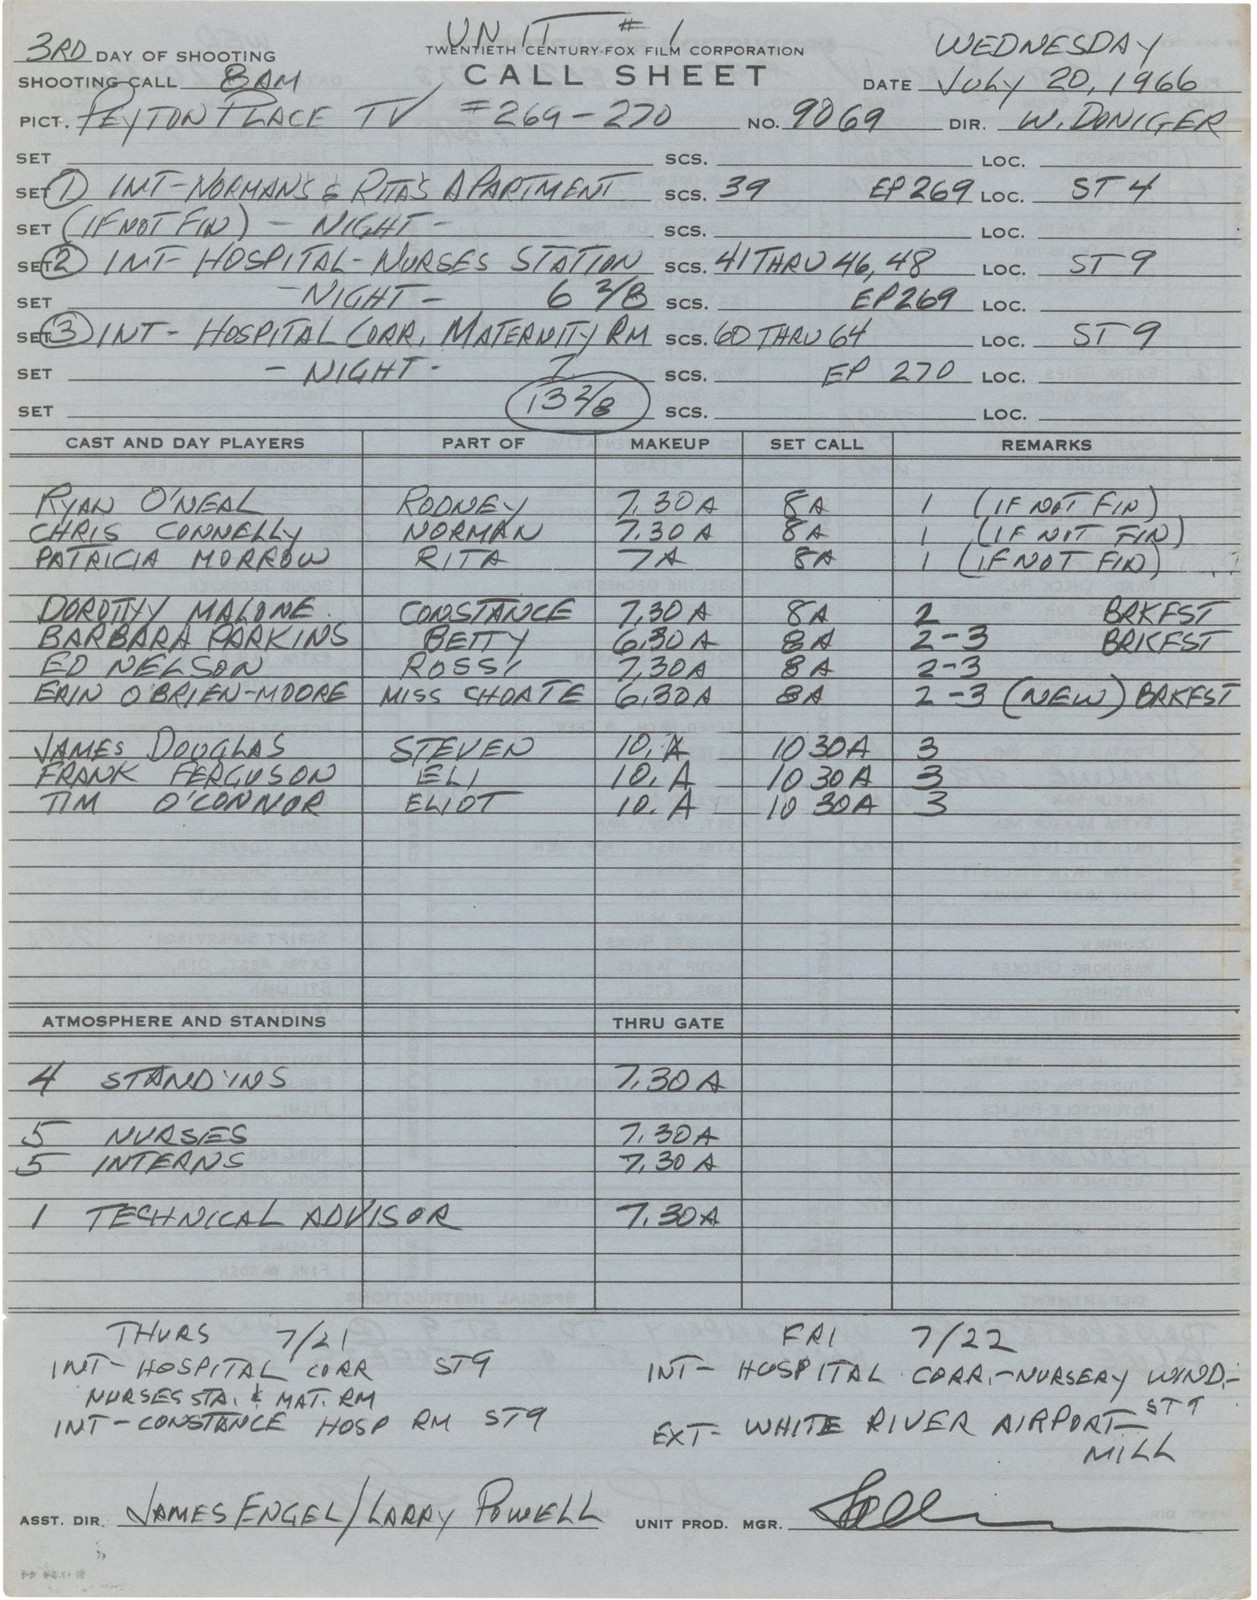 UNIT #1
3RD DAY OF SHOOTING TWENTIETH CENTURY-FOX FILM CORPORATION WEDNESDAY
SHOOTING CALL 8AM CALL SHEET DATE JULY 20, 1966
PICT. PEYTON PLACE TV #269-270 NO. 9069 DIR. W. DONIGER
SET SCS. LOC.
SET 1 INT-NORMAN'S & RITA'S APARTMENT SCS. 39 EP 269 LOC. ST 4
SET (IF NOT FIN) - NIGHT - SCS. LOC.
SET 2 INT- HOSPITAL-NURSES STATION SCS. 41 THRU 46, 48 LOC. ST 9
SET - NIGHT - 6 3/8 SCS. EP 269 LOC.
SET 3 INT- HOSPITAL CORR, MATERNITY RM SCS. 60 THRU 64 LOC. ST 9
SET - NIGHT - 7 SCS. EP 270 LOC.
SET 13 2/8 SCS. LOC.
CAST AND DAY PLAYERS PART OF MAKEUP SET CALL REMARKS
RYAN O'NEAL RODNEY 7.30A 8A 1 (IF NOT FIN)
CHRIS CONNELLY NORMAN 7.30A 8A 1 (IF NOT FIN)
PATRICIA MORROW RITA 7A 8A 1 (IF NOT FIN)
DOROTHY MALONE. CONSTANCE 7.30A 8A 2 BRKFST
BARBARA PARKINS BETTY 6.30A 8A 2-3 BRKFST
ED NELSON ROSSI 7.30A 8A 2-3
ERIN O'BRIEN-MOORE MISS CHOATE 6.30A 8A 2-3 (NEW) BRKFST
JAMES DOUGLAS STEVEN 10.A 10 30A 3
FRANK FERGUSON ELI 10.A 10 30A 3
TIM O'CONNOR ELIOT 10.A 10 30A 3
ATMOSPHERE AND STANDINS THRU GATE
4 STAND'INS 7.30A
5 NURSES 7.30A
5 INTERNS 7.30A
1 TECHNICAL ADVISOR 7.30A
THURS 7/21 FRI 7/22
INT- HOSPITAL CORR ST9 INT- HOSPITAL CORR.-NURSERY WIND.-
NURSES STA. & MAT. RM ST 9
INT-CONSTANCE HOSP RM ST9 EXT- WHITE RIVER AIRPORT-
MILL
ASST. DIR. JAMES ENGEL/LARRY POWELL UNIT PROD. MGR.